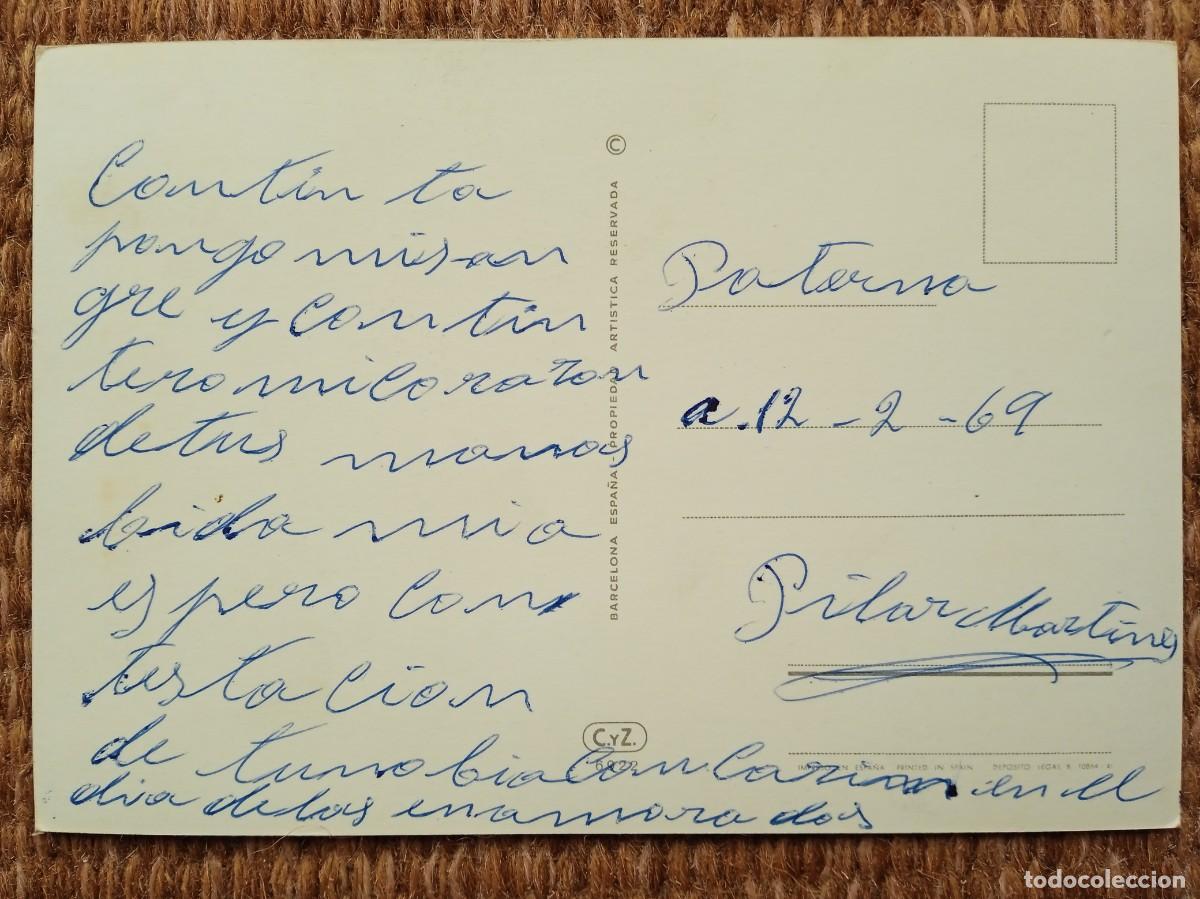 Contin ta
pongo misan
gre y contin
tero mi corazon
de tus manos
bida mia
espero con
testacion
de tu nobia con carino en el
dia de los enamorados
©
BARCELONA ESPAÑA - PROPIEDAD ARTISTICA RESERVADA
C.Y Z.
6922
Paterna
a. 12 - 2 - 69
Pilar Martines
IMPRESO EN ESPAÑA PRINTED IN SPAIN DEPOSITO LEGAL B.
todocoleccion